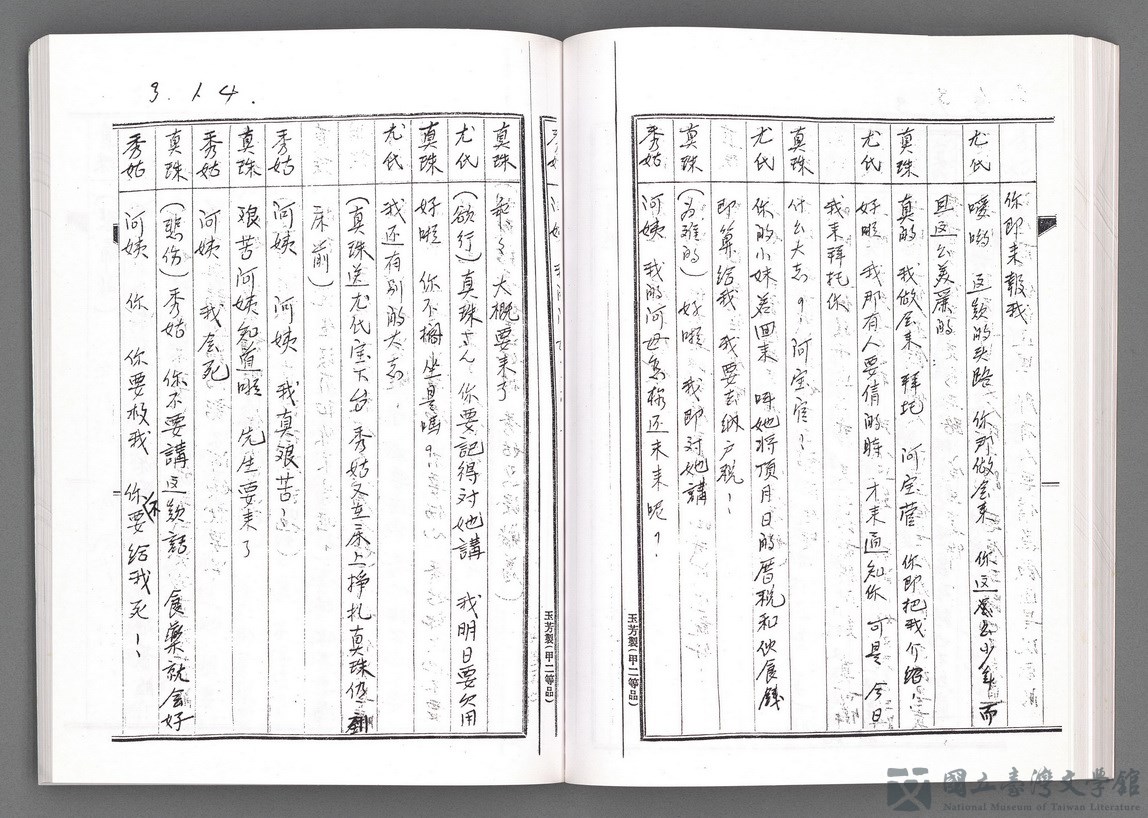 你即来報我
尤氏 噯喲 這款的头路 你那做会来 你这么少年 而
且这么美麗的
真珠 真的 我做会来 拜托 阿宝官 你即把我介紹！
尤氏 好啦 我那有人要倩的時 才来通知你 可是 今日
我来拜托你
真珠 什么大志？ 阿宝官！
尤氏 你的小妹若回来 唔她将頂月日的厝税和伙食錢
即算給我 我要去纳户税！
真珠 （为难的） 好啦 我即对她講
秀姑 阿姨 我的阿母怎样还未来呢？
玉芳製（甲二等品）
真珠 大概要来了
尤氏 （欲行）真珠さん 你要記得对她講 我明日要欠用
真珠 好啦 你不擱坐是嗎？
尤氏 我还有别的大志．
（真珠送尤氏宝下台 秀姑又在床上掙扎真珠倚
床前）
秀姑 阿姨 阿姨 我真艰苦！
真珠 艰苦阿姨知道啦 先生要来了
秀姑 阿姨 我会死
真珠 （悲伤）秀姑 你不要講这款話 食藥就会好
秀姑 阿姨 你 你要救我 你不要給我死！！
玉芳製（甲二等品）
3.14.
國立臺灣文學館
National Museum of Taiwan Literature